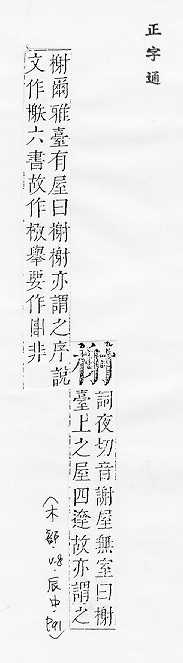 正字通
榭
詞夜切音謝屋無室曰榭
臺上之屋四達故亦謂之
榭爾雅臺有屋曰榭榭亦謂之序説
文作 六書故作 舉要作 非
(木部.辰中.p91)